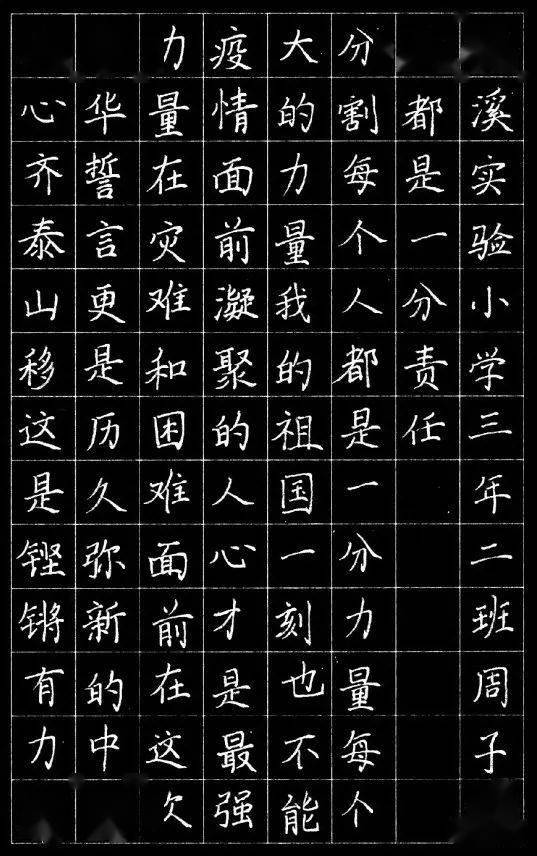 心齐泰山移这是铿锵有力
华誓言更是历久弥新的中
力量在灾难和困难面前在这欠
疫情面前凝聚的人心才是最强
大的力量我的祖国一刻也不能
分割每个人都是一分力量每个
都是一分责任
溪实验小学三年二班周子